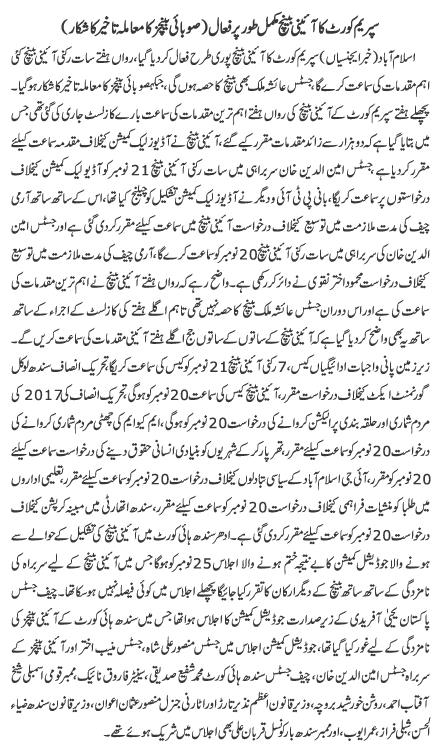 سپریم کورٹ کا آئینی بینچ مکمل طور پر فعال (صوبائی بینچز کا معاملہ تاخیر کا شکار)
اسلام آباد (خبر ایجنسیاں) سپریم کورٹ کا آئینی بینچ پوری طرح فعال کر دیا گیا، رواں ہفتے سات رکنی آئینی بینچ کئی
اہم مقدمات کی سماعت کرے گا، جسٹس عائشہ ملک بھی بینچ کا حصہ ہوں گی، جبکہ صوبائی بینچز کا معاملہ تاخیر کا شکار ہوگیا۔
پچھلے ہفتے سپریم کورٹ کے آئینی بینچ کی رواں ہفتے مقدمات کی سماعت بارے کازلسٹ جاری کی گئی تھی جس
میں بتایا گیا ہے کہ دو ہزار سے زائد مقدمات مقرر کیے گئے، آئینی بینچ نے آڈیو لیک کمیشن کیخلاف مقدمہ سماعت کیلئے
مقرر کیا ہے، جسٹس امین الدین خان سربراہی میں سات رکنی آئینی بینچ 21 نومبر کو آڈیو لیک کمیشن کیخلاف
درخواستوں پر سماعت کریگا، بانی پی ٹی آئی و دیگر نے آڈیوز لیک کمیشن تشکیل کو چیلنج کیا تھا، اس کے ساتھ ساتھ آرمی
چیف کی مدت ملازمت میں توسیع کیخلاف درخواست آئینی بینچ میں سماعت کیلئے مقرر کر دی گئی ہے اور جسٹس امین
الدین خان کی سربراہی میں سات رکنی آئینی بینچ 20 نومبر کو سماعت کرے گا، آرمی چیف کی مدت ملازمت میں توسیع
کیخلاف درخواست محمود اختر نقوی نے دائر کر رکھی ہے۔ واضح رہے کہ رواں ہفتے آئینی بینچ نے اہم ترین مقدمات کی
سماعت کی ہے اور اس دوران جسٹس عائشہ ملک بینچ کا حصہ نہیں تھی تاہم اگلے ہفتے کی کازلسٹ کے اجراء کے ساتھ
ساتھ یہ بھی واضح کر دیا گیا ہے کہ آئینی بینچ کے ساتوں کے ساتوں جج اگلے ہفتے آئینی مقدمات کی سماعت کریں گے۔
زیر زمین پانی واجبات ادائیگیاں کیس، 7 رکنی آئینی بینچ 21 نومبر کو کیس کی سماعت کریگا تحریک انصاف سندھ لوکل
گورنمنٹ ایکٹ کیخلاف درخواست مقرر، آئینی بینچ کیس کی سماعت 20 نومبر کو ہوگی، تحریک انصاف کی 2017 کی
مردم شماری اور حلقہ بندی پر الیکشن کروانے کی درخواست 20 نومبر کو ہوگی، ایم کیو ایم کی چھٹی مردم شماری کروانے کی
درخواست 20 نومبر کو سماعت کیلئے مقرر، تھر پارکر کے شہریوں کو بنیادی انسانی حقوق دینے کی درخواست سماعت کیلئے
20 نومبر کو مقرر، آئی جی اسلام آباد کے سیاسی تبادلوں کیخلاف درخواست 20 نومبر کو سماعت کیلئے مقرر، تعلیمی اداروں
میں طلبا کو منشیات فراہمی کیخلاف درخواست 20 نومبر کو سماعت کیلئے مقرر، سندھ اتھارٹی میں مبینہ کرپشن کیخلاف
درخواست 20 نومبر کو سماعت کیلئے مقرر کر دی گئی ہے۔ ادھر سندھ ہائی کورٹ میں آئینی بینچ کی تشکیل کے حوالے سے
ہونے والا جوڈیشل کمیشن کا بے نتیجہ ختم ہونے والا اجلاس 25 نومبر کو ہوگا جس میں آئینی بینچ کے لیے سربراہ کی
نامزدگی کے ساتھ ساتھ بینچ کے دیگر ارکان کا تقرر کیا جائیگا پچھلے اجلاس میں کوئی فیصلہ نہیں ہوسکا تھا۔ چیف جسٹس
پاکستان یحییٰ آفریدی کے زیر صدارت جوڈیشل کمیشن کا اجلاس ہوا تھا جس میں سندھ ہائی کورٹ کے آئینی بینچز کی
نامزدگی کے لیے غور کیا گیا تھا، جوڈیشل کمیشن اجلاس میں جسٹس منصور علی شاہ، جسٹس منیب اختر اور آئینی بینچز کے
سربراہ جسٹس امین الدین خان، چیف جسٹس سندھ ہائی کورٹ محمد شفیع صدیقی، سینیٹر فاروق نائیک، ممبر قومی اسمبلی شیخ
آفتاب احمد، روشن خورشید بروچہ، وزیر قانون اعظم نذیر تارڑ اور اٹارنی جنرل منصور عثمان اعوان، وزیر قانون سندھ ضیاء
الحسن، شبلی فراز، عمر ایوب، اور ممبر سندھ بار کونسل قربان علی بھی اجلاس میں شریک ہوئے تھے۔